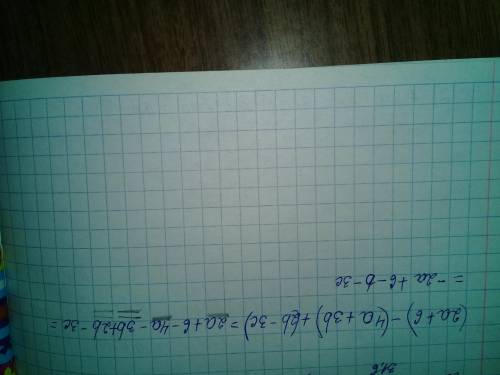 31,6
(2a+6)-(4a+3b)+(2b-3c)=2a+6-4a-3b+2b-3c=
=-2a+6-b-3c